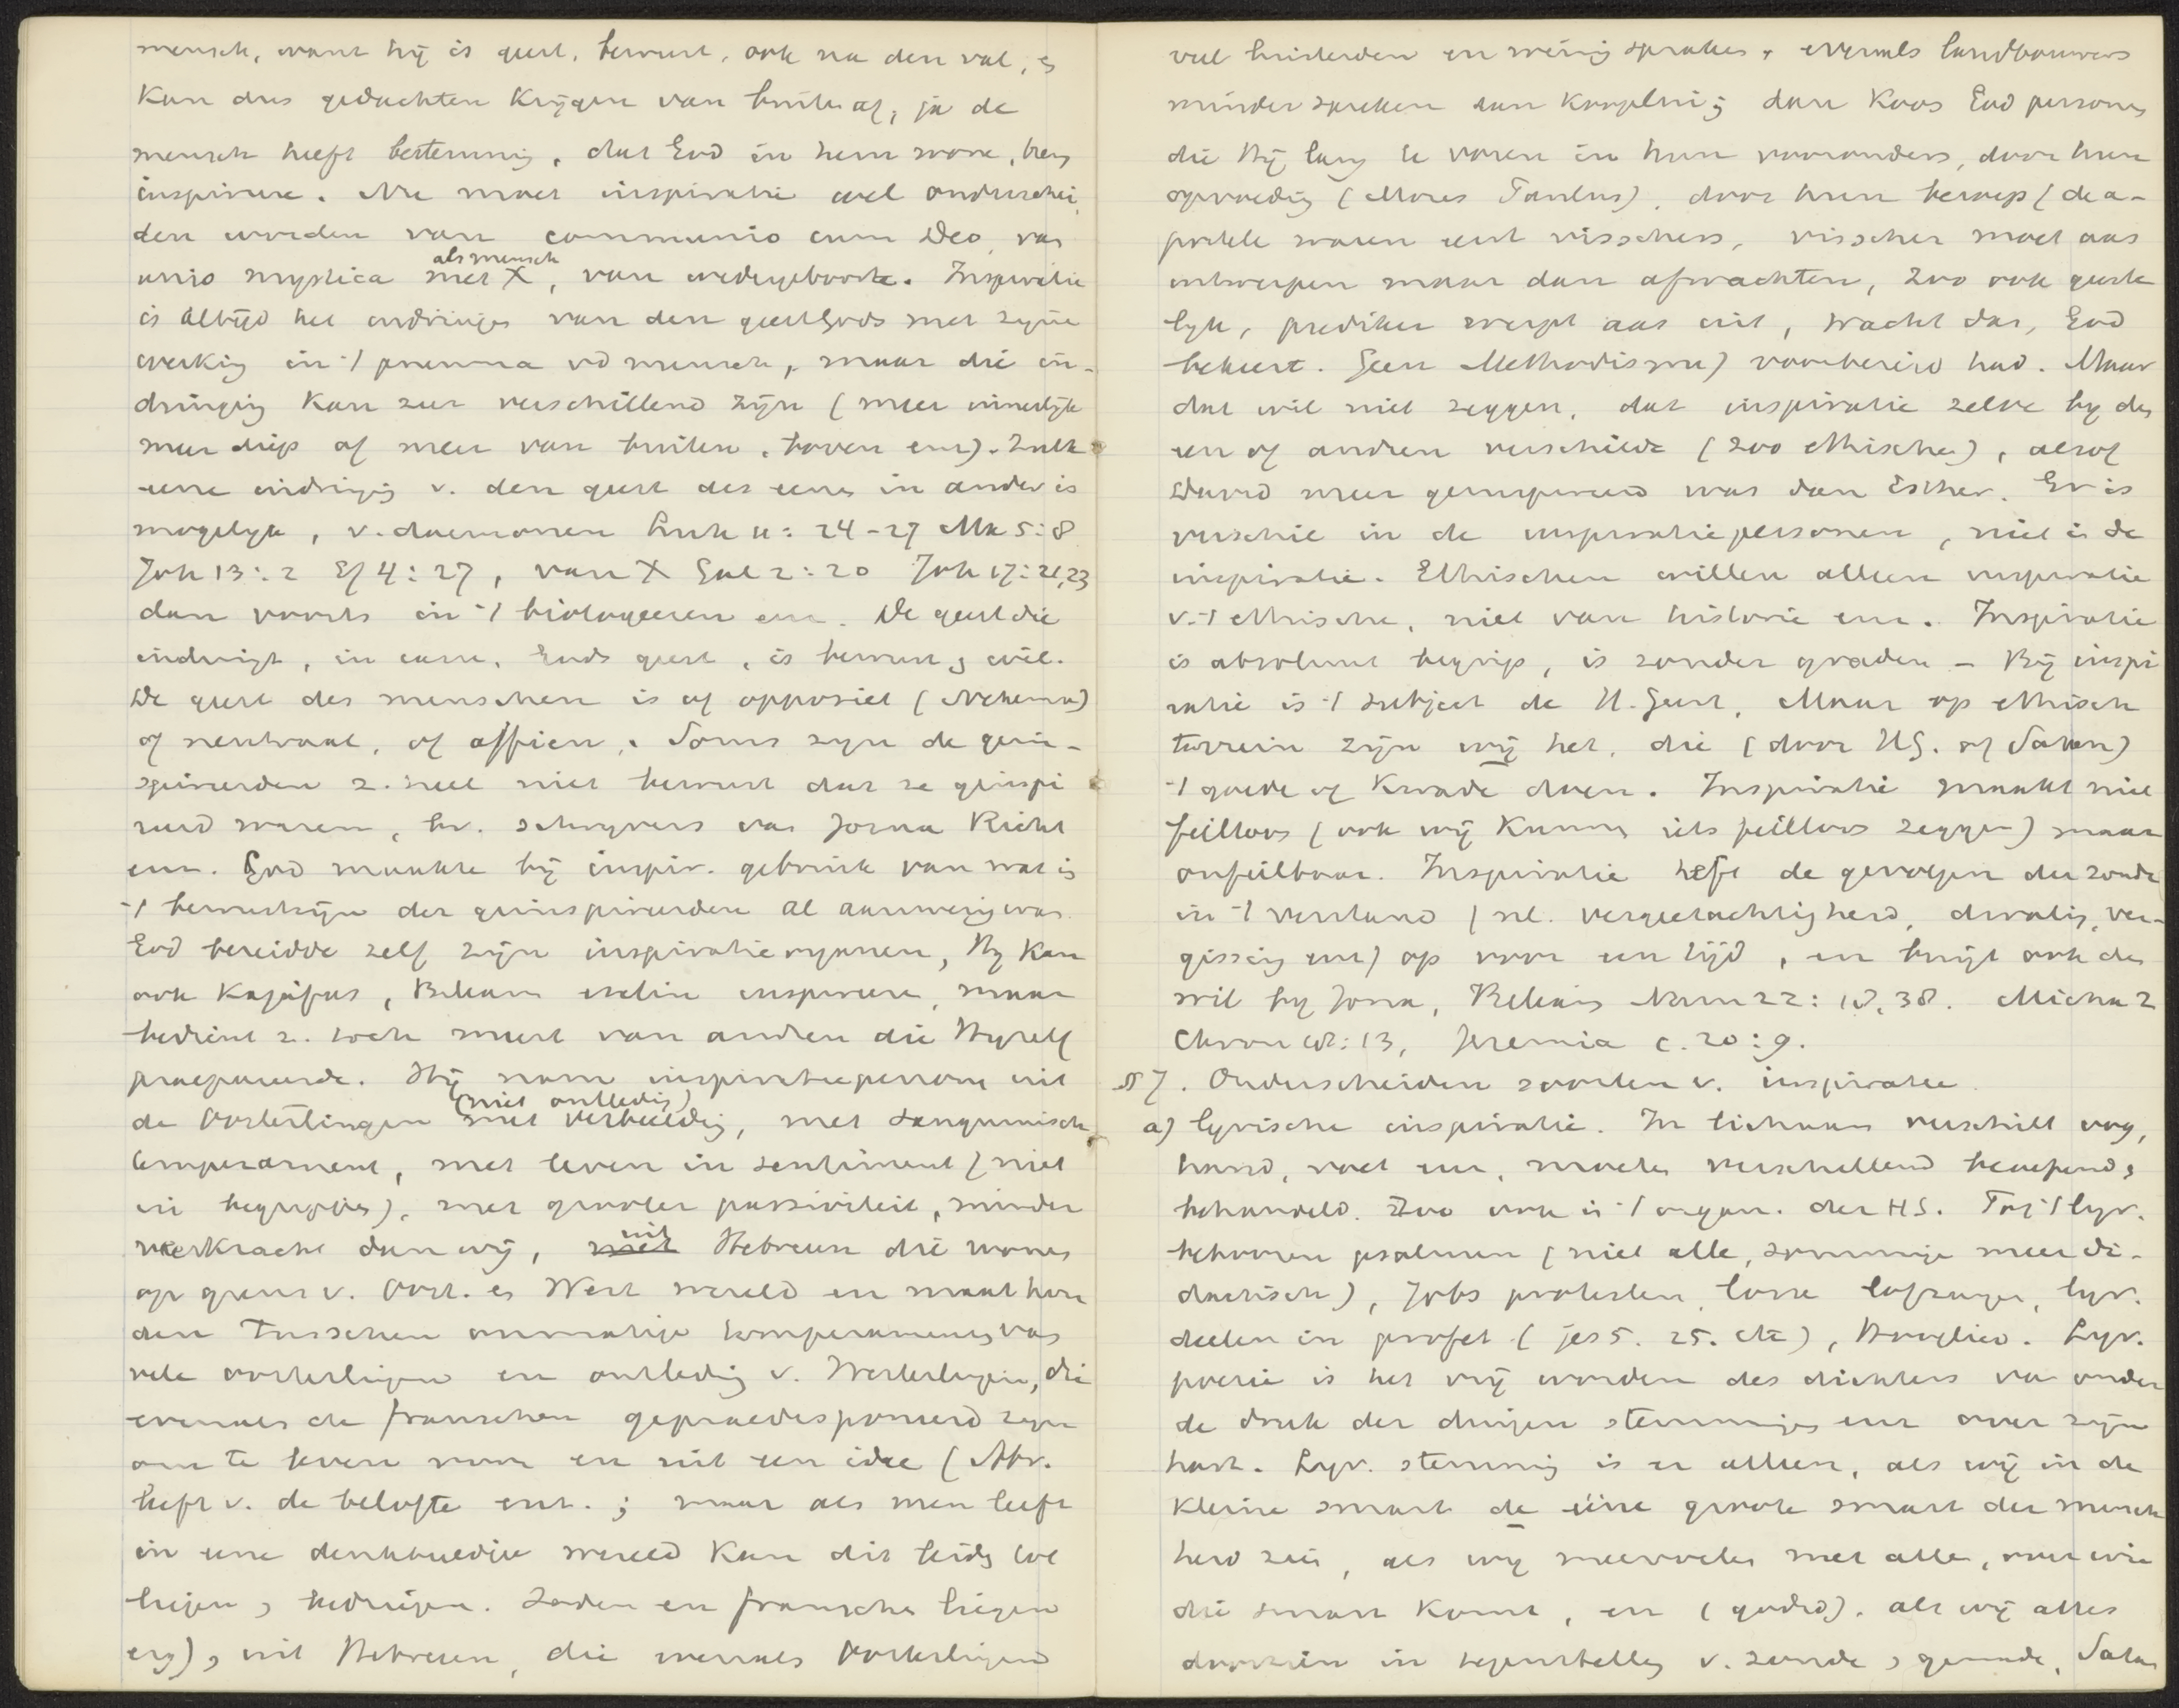 mensch, want hij is geest, bewust, ook na den val, &
kan dus gedachten krijgen van buiten af, ja de
mensch heeft bestemming, dat God in hem wone, hem
inspirere. Nu moet inspiratie wel onderschei
den worden van communio cum Deo, van
unio mystica met X als mensch, van wedergeboorte. Inspiratie
is altijd het indringen van den geest Gods met zijne
werking in 't pneuma vd mensch, maar die in-
dringing kan zeer verschillend zijn (meer innerlijk
meer diep of meer van buiten, boven enz). Zulk
eene indringing v. den geest des eenen in ander is
mogelijk, v. daemonen Luk 11: 24-27 Mk 5:8
Joh 13:2 Ef 4:27, van X Gal 2:20 Joh 17:21,23
dan voorts in 't biologeeren enz. De geest die
indringt, in casu, Gods geest, is bewust & wil.
De geest des menschen is of opposiet (Nehemia)
of neutraal, of affien. Soms zijn de geïn-
spireerden z. heel niet bewust dat ze geïnspi
reerd waren, bv. schrijvers van Jozua Richt
enz. God maakte bij inspir. gebruik van wat in
't bewustzijn der geïnspireerden al aanwezig was.
God bereidde zelf zijn inspiratieorganen, Hij kan
ook Kajafas, Bileam, ezelin inspireeren, maar
bedient z. toch meest van andren die Hijzelf
praepareerde. Hij nam inspiratiepersonen uit
de Oosterlingen met verbeelding (niet ontleding), met sanguinisch
temperament, met leven in sentiment (niet
in begrippen), met grooter passiviteit, minder
veerkracht dan wij, uit Hebreeuwen die wonen
op grens v. Oost. en West wereld en maat hou
den tusschen onmatige temperaments van
vele oosterlingen en ontleding v. Westerlingen, die
evenals de franschen gepraedisponeerd zijn
om te leven voor en uit een idee (Abr.
leeft v. de belofte enz.; maar als men leeft
in eene denkbeeldige wereld kan dit leiden tot
liegen & bedriegen. Joden en franschen liegen
erg), uit Hebreen, die evenals Oosterlingen
veel luisterden en weinig spraken & evenals landbouwers
minder spreken dan kooplui; dan koos God personen
die Hij lang te voren in hun voorouders, door hun
opvoeding (Mozes Paulus), door hun beroep (de a-
postelen waren eerst visschers, visscher moet aas
ontwerpen maar dan afwachten, zoo ook geeste
lijk, prediker werpt aas uit, wacht dan, God
bekeert. Geen Methodisme) voorbereid had. Maar
dat wil niet zeggen, dat inspiratie zelve bij den
een of andren verschilde (zoo ethischen), alsof
David meer geïnspireerd was dan Esther. Er is
verschil in de inspiratiepersonen, niet in de
inspiratie. Ethischen willen alleen inspiratie
v. 't ethische, niet van historie enz. Inspiratie
is absoluut begrip, is zonder graden – Bij inspi
ratie is 't subject de H. Geest, maar op ethisch
terrein zijn wij het, die (door HG. of Satan)
't goede of kwade doen. Inspiratie maakt niet
feilloos (ook wij kunnen iets feilloos zeggen) maar
onfeilbaar. Inspiratie heft de gevolgen der zonde
in 't verstand (nl. vergeetachtigheid, dwaling, ver-
gissing enz) op voor een tijd, en buigt ook den
wil bij Jona, Bileam Num 22: 18, 38. Micha 2
Chron 18:13, Jeremia c. 20:9.
§ 7. Onderscheiden soorten v. inspiratie.
a) lyrische inspiratie. In lichaam verschilt oog,
hand, voet enz, moeten verschillend beoefend &
behandeld. Zoo ook in 't organ. der HS. Tot 't lyr.
behooren psalmen (niet alle, sommige meer di-
dactisch), Jobs protesten, losse lofzangen, lyr.
deelen in profet (jes 5. 25. etc), Hooglied. Lyr.
poezie is het vrij worden des dichters van onder
de druk der dingen stemmingen enz over zijn
hart. Lyr. stemming is er alleen, als wij in de
kleine smart de ééne groote smart der mensch
heid zien, als wij meevoelen met allen, over wie
die smart komt, en (godsd). als wij alles
doorzien in tegenstelling v. zonde & genade, Satan